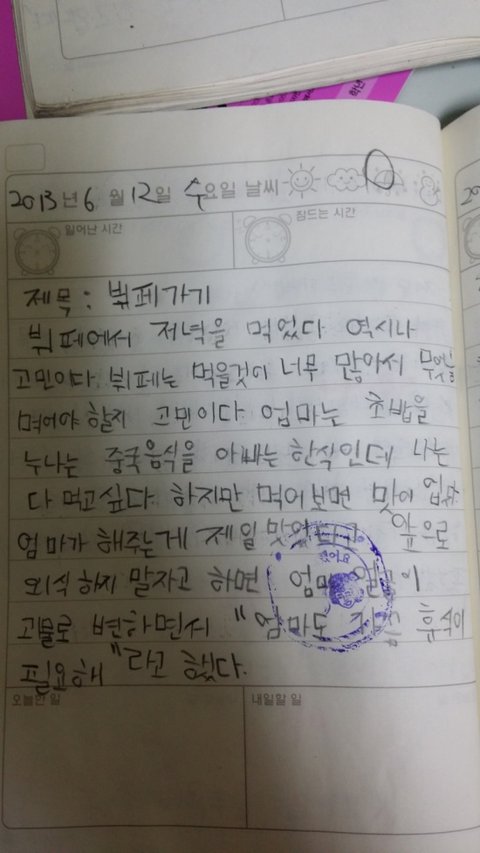 학년
2013년 6월 12일 수요일 날씨
일어난 시간
잠드는 시간
제목: 뷔페가기
뷔페에서 저녁을 먹었다 역시나
고민이다 뷔페는 먹을것이 너무 많아서 무엇을
먹어야 할지 고민이다 엄마는 초밥을
누나는 중국음식을 아빠는 한식인데 나는
다 먹고 싶다. 하지만 먹어보면 맛이 없다
엄마가 해주는게 제일 앞으로
외식 하지 말자고 하면 엄마
괴물로 변하면서 "엄마도 휴식이
필요해"라고 했다.
오늘한 일
내일할 일